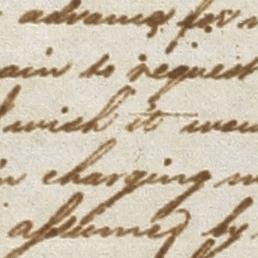 advance for
ain to request
I wish it wou
in charging
assumed by